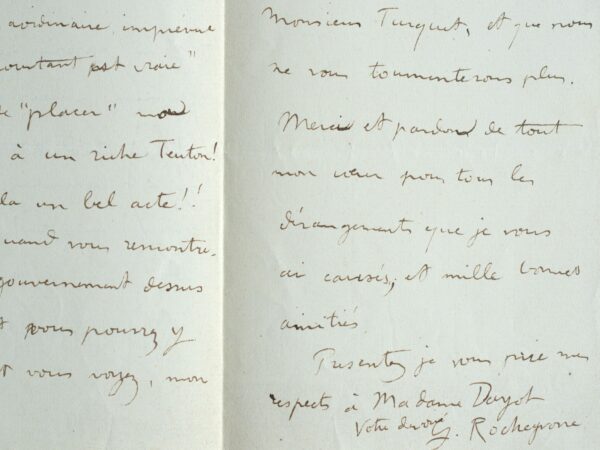 aordinaire, imprévue
pourtant est vraie"
de "placer" nos
à un riche Teuton!
la un bel acte!!
quand vous rencontre-
gouvernement dessus
vous pourrez y
t vous voyez, mon
Monsieur Turquet, et que nous
ne vous tourmenterons plus.
Merci et pardon de tout
mon cœur pour tous les
dérangements que je vous
ai causés, et mille bonnes
amitiés.
Presentez je vous prie mes
respects à Madame Dayot
Votre dévoué G. Rochegrosse